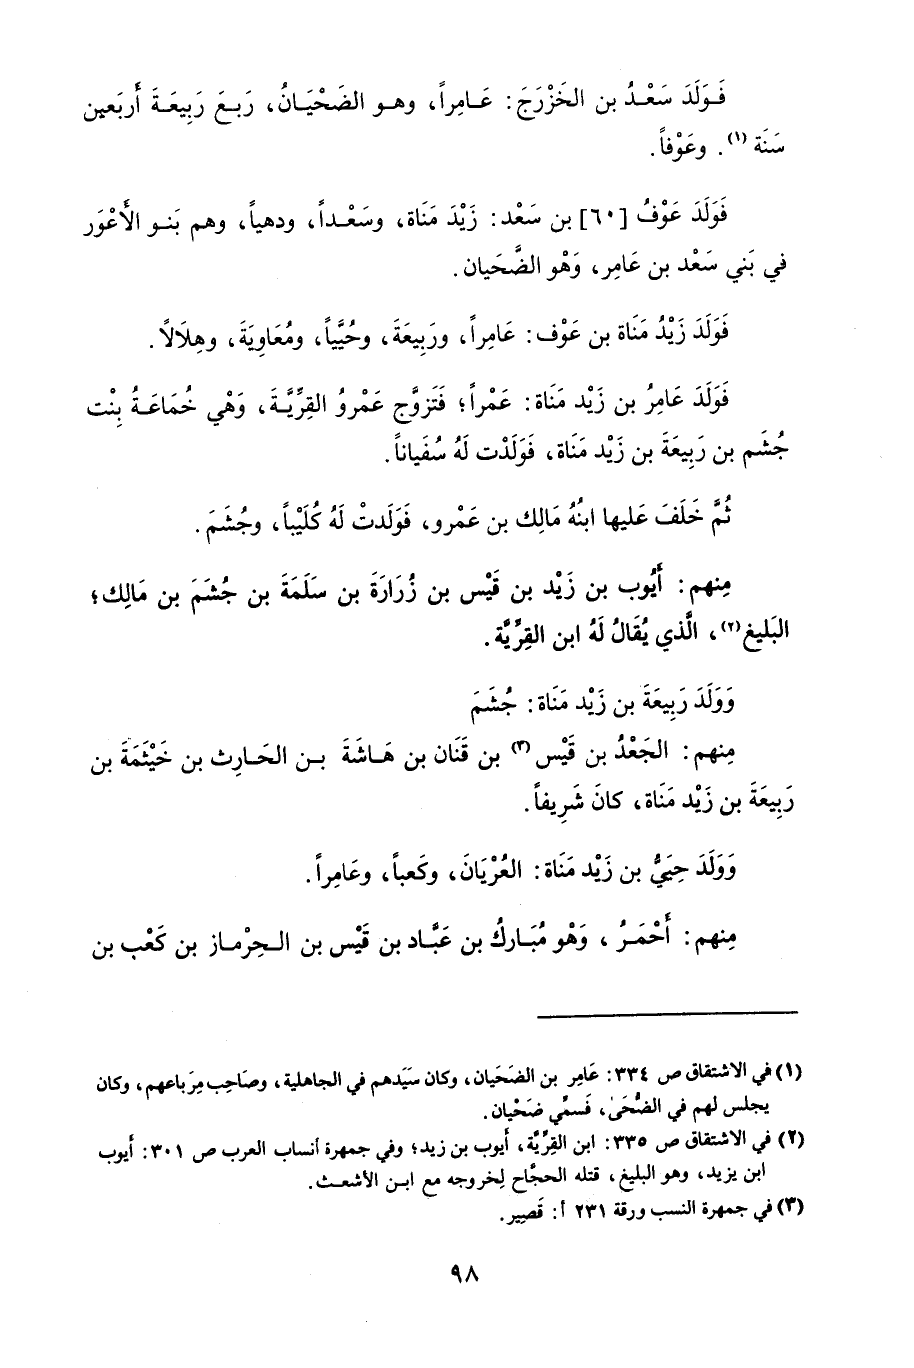 فَوَلَدَ سَعْدُ بن الخَزْرَجَ: عَامِراً، وهو الضَحْيَانُ، رَبعَ رَبِيعَةَ أَربَعين
سَنَة (١). وعَوْفاً.
فَوَلَدَ عَوْفُ [٦٠] بن سَعْد: زَيْدَ مَنَاة، وسَعْداً، ودهياً، وهم بَنو الأَعْوَر
في بَني سَعْد بن عَامِر، وَهْو الضَّحَيان.
فَوَلَدَ زَيْدُ مَنَاة بن عَوْف: عَامِراً، ورَبِيعَةَ، وحُيَيَّاً، ومُعَاوِيَةَ، وهِلَالًا.
فَوَلَدَ عَامِرُ بن زَيْد مَنَاة: عَمْراً؛ فَتَزوَّج عَمْروُ القِرِّيَّة، وَهْي خُمَاعَةُ بِنْت
جُشَم بن رَبِيعَةَ بن زَيْد مَنَاة، فَوَلَدْت لَهُ سُفَياناً.
ثُمَّ خَلَفَ عَليها ابنُهُ مَالِك بن عَمْرو، فَوَلَدتْ لَهُ كُلَيْباً، وجُشَمَ.
مِنهم: أَيُوب بن زَيْد بن قَيْس بن زُرَارَةَ بن سَلَمَةَ بن جُشَمَ بن مَالِك؛
البَليغ(٢)، الَّذي يُقَالُ لَهُ ابن القِرِّيَّة.
وَوَلَدَ رَبِيعَةَ بن زَيْد مَنَاة: جُشَمَ
مِنهم: الجَعْدُ بن قَيْس (٣) بن قَنَان بن هَاشَةَ بن الحَارِث بن خَيْثَمَةَ بن
رَبِيعَةَ بن زَيْد مَنَاة، كانَ شَرِيفاً.
وَوَلَدَ حِيَيُّ بن زَيْد مَنَاة: العُرْيَانَ، وكَعباً، وعَامِراً.
مِنهم: أَحْمَرُ، وَهْو مُبَارِكُ بن عَبَّاد بن قَيْس بن الحِرْماز بن كَعْب بن
(١) في الاشتقاق ص ٣٣٤: عَامِر بن الضَحَيان، وكان سَيّدهم في الجاهلية، وصَاحِب مِرْباعهم، وكان
يجلس لهم في الضُّحَىٰ، فَسمِّي ضَحْيان.
(٢) في الاشتقاق ص ٣٣٥: ابن القِرِّيَّة، أيوب بن زيد؛ وفي جمهرة أنساب العرب ص ٣٠١: أيوب
ابن يزيد، وهو البليغ، قتله الحجَّاج لِخروجه مع ابن الأشعث.
(٣) في جمهرة النسب ورقة ٢٣١ أ: قَصِير.
٩٨